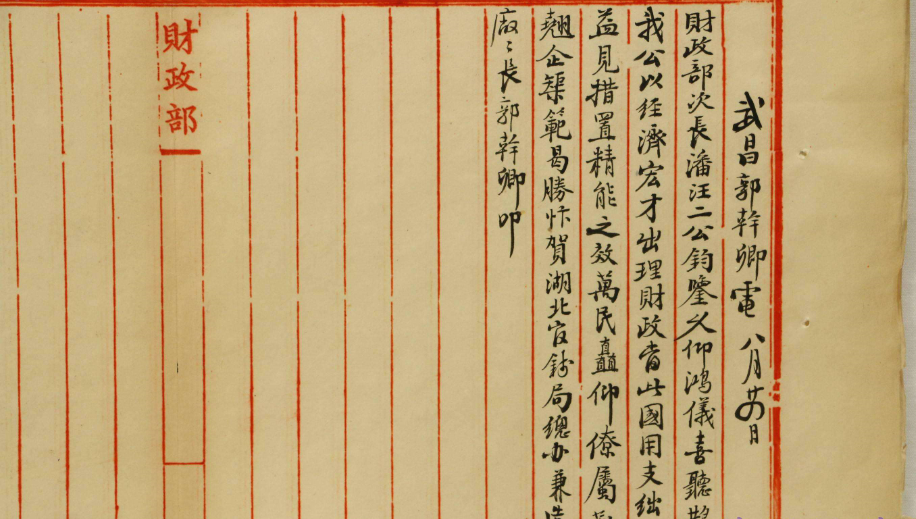 武昌郭幹卿電 八月廿四日
財政部次長潘汪二公鈞鑒久仰鴻儀喜聽
我公以經濟宏才出理財政當此國用支絀
益見措置精能之效萬民矗仰僚屬
翹企榘範曷勝忭賀湖北官錢局總办兼造
廠〻長郭幹卿叩
財政部